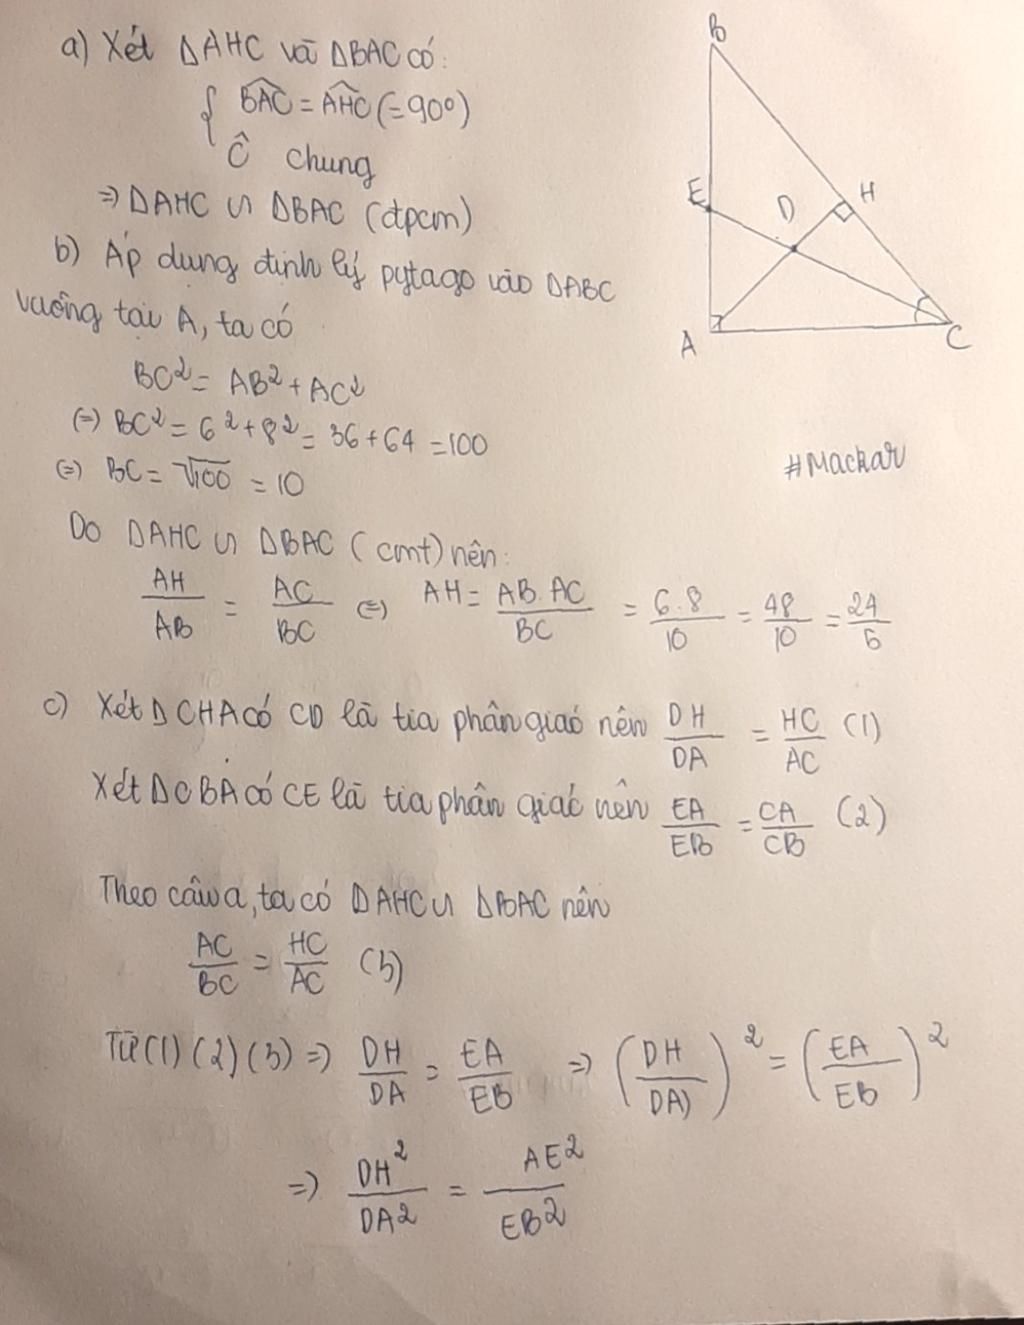 a) Xét ΔAHC và ΔBAC có:
{ BAC = AHC (= 90°)
Ĉ chung
=> ΔAHC ∽ ΔBAC (đpcm)
b) Áp dung định lý pytago vào ΔABC
vuông tại A, ta có
BC² = AB² + AC²
(=) BC² = 6² + 8² = 36 + 64 = 100
(=) BC = √100 = 10
Do ΔAHC ∽ ΔBAC (cmt) nên:
AH/AB = AC/BC (=) AH = AB.AC/BC = 6.8/10 = 48/10 = 24/5
c) Xét ΔCHA có CD là tia phân giác nên DH/DA = HC/AC (1)
Xét ΔCBA có CE là tia phân giác nên EA/EB = CA/CB (2)
Theo câu a, ta có ΔAHC ∽ ΔBAC nên
AC/BC = HC/AC (3)
Từ (1) (2) (3) => DH/DA = EA/EB => (DH/DA)² = (EA/EB)²
=> DH²/DA² = AE²/EB²
B
E
D
H
A
C
#Mackar